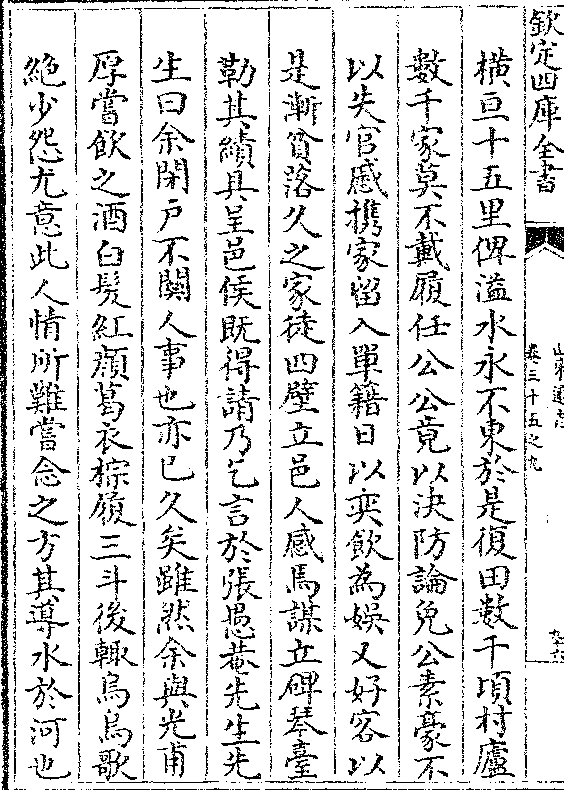 欽定四庫全書
山東通志
卷三十五之九
橫亘十五里俾溢水永不東於是復田數千頃村廬
數千家莫不戴履任公公竟以決防論免公素豪不
以失官慼攜家留入單籍日以奕飲為娛又好客以
是漸貧落久之家徒四壁立邑人感焉謀立碑琴臺
勒其績具呈邑侯既得請乃乞言於張愚菴先生先
生曰余閉戶不關人事也亦已久矣雖然余與光甫
厚嘗飲之酒白髮紅顏葛衣棕履三斗後輒烏烏歌
絶少怨尤意此人情所難嘗念之方其導水於河也